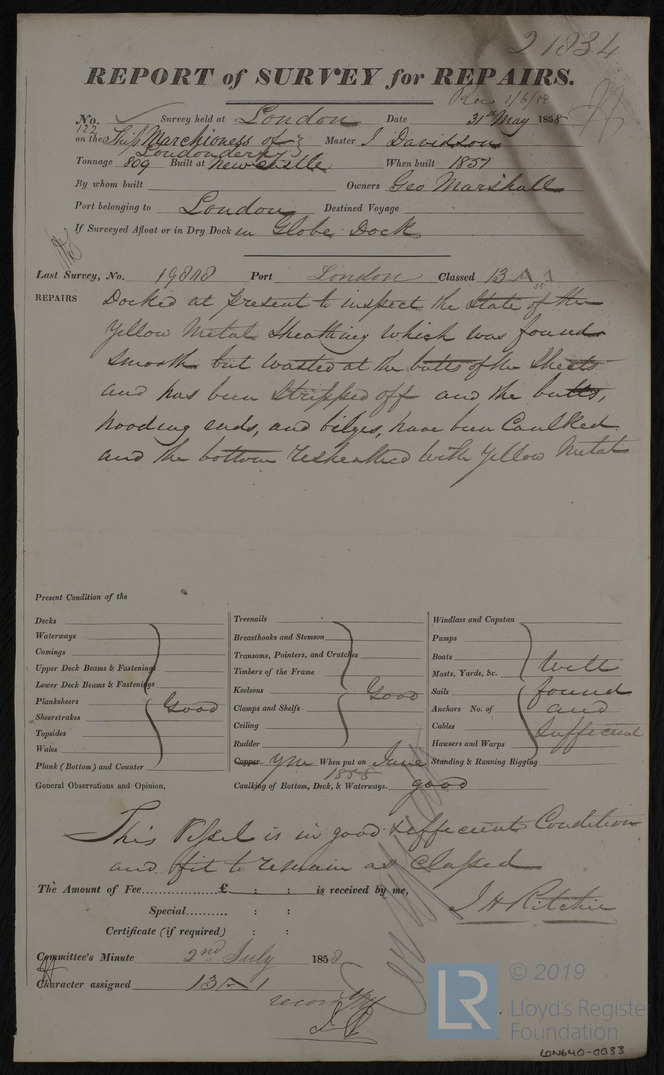 21834
REPORT of SURVEY for REPAIRS.
Rec 1/6/58
No. 122 Survey held at London Date 31st May 1858
on the Ship Marchioness of Londonderry Master J Davidson
Tonnage 809 Built at Newcastle When built 1857
By whom built Owners Geo Marshall
Port belonging to London Destined Voyage
If Surveyed Afloat or in Dry Dock in Globe Dock
Last Survey, No. Port London Classed 13 A 1
REPAIRS Docked at present to inspect the State of the
Yellow Metal Sheathing which was found
smooth but wasted at the butts of the Sheets
and has been Stripped off and the butts,
hooding ends, and bilges, have been Caulked
and the bottom resheathed with Yellow Metal
Present Condition of the
Decks
Waterways
Comings
Upper Deck Beams & Fastenings
Lower Deck Beams & Fastenings
Planksheers
Sheerstrakes
Topsides
Wales
Plank (Bottom) and Counter
Good
Treenails
Breasthooks and Stemson
Transoms, Pointers, and Crutches
Timbers of the Frame
Keelsons
Clamps and Shelfs
Ceiling
Rudder
Good
Copper YM When put on June 1858
Caulking of Bottom, Deck, & Waterways. good
Windlass and Capstan
Pumps
Boats
Masts, Yards, &c.
Sails
Anchors No. of
Cables
Hawsers and Warps
Standing & Running Rigging
Well
found
and
Sufficient
General Observations and Opinion,
This Vessel is in good & efficient Condition
and fit to remain as Classed
The Amount of Fee.............£ : : is received by me,
Special.......... : :
Certificate (if required) : :
J H Ritchie
Committee's Minute 2nd July 1858
Character assigned 13 A 1
© 2019
LR
Lloyd's Register
Foundation
LON640-0033